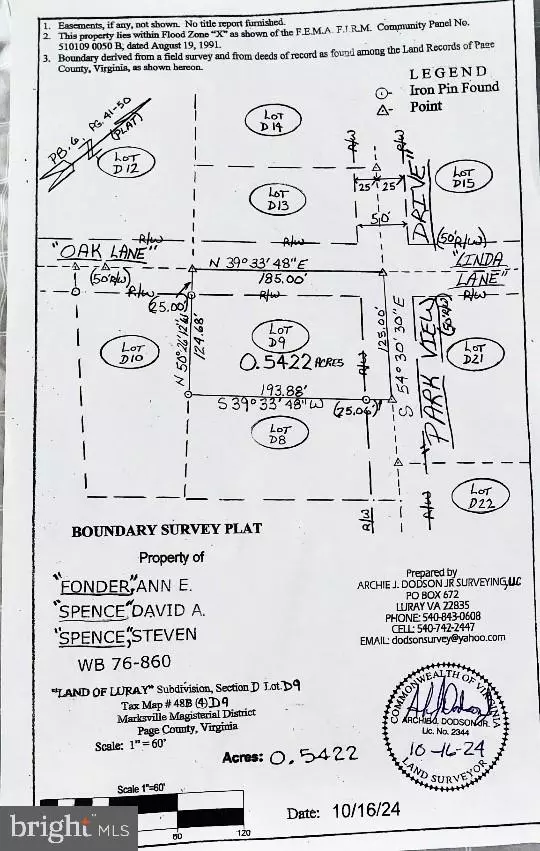 1. Easements, if any, not shown. No title report furnished.
2. This property lies within Flood Zone "X" as shown of the F.E.M.A. F.I.R.M. Community Panel No.
510109 0050 B, dated August 19, 1991.
3. Boundary derived from a field survey and from deeds of record as found among the Land Records of Page
County, Virginia, as shown hereon.
LEGEND
Iron Pin Found
Point
PB. 6 PG. 41-50
(PLAT)
LOT
D14
LOT
D12
LOT
D13
LOT
D15
R/W
R/W
25' 25'
50'
"PARK VIEW DRIVE"
(50'R/W)
(50'R/W)
"OAK LANE"
(50'R/W)
R/W
R/W
"LINDA
LANE"
R/W
N 39° 33' 48" E
185.00'
R/W
R/W
(25.00')
LOT
D10
N 50° 26' 12" W
124.68'
LOT
D9
0.5422 ACRES
R/W
125.00'
S 54° 30' 30" E
LOT
D21
193.88'
S 39° 33' 48" W
(25.06')
LOT
D8
LOT
D22
R/W
R/W
BOUNDARY SURVEY PLAT
Property of
"FONDER," ANN E.
"SPENCE," DAVID A.
"SPENCE," STEVEN
WB 76-860
Prepared by
ARCHIE J. DODSON JR SURVEYING, LLC
PO BOX 672
LURAY VA 22835
PHONE: 540-843-0608
CELL: 540-742-2447
EMAIL: dodsonsurvey@yahoo.com
"LAND OF LURAY" Subdivision, Section D Lot D9
Tax Map # 48B (4) D9
Marksville Magisterial District
Page County, Virginia
Scale: 1" = 60'
Acres: 0.5422
COMMONWEALTH OF VIRGINIA
ARCHIE J. DODSON JR.
Lic. No. 2344
10-16-24
LAND SURVEYOR
Scale 1"=60'
60
120
Date: 10/16/24
bright MLS